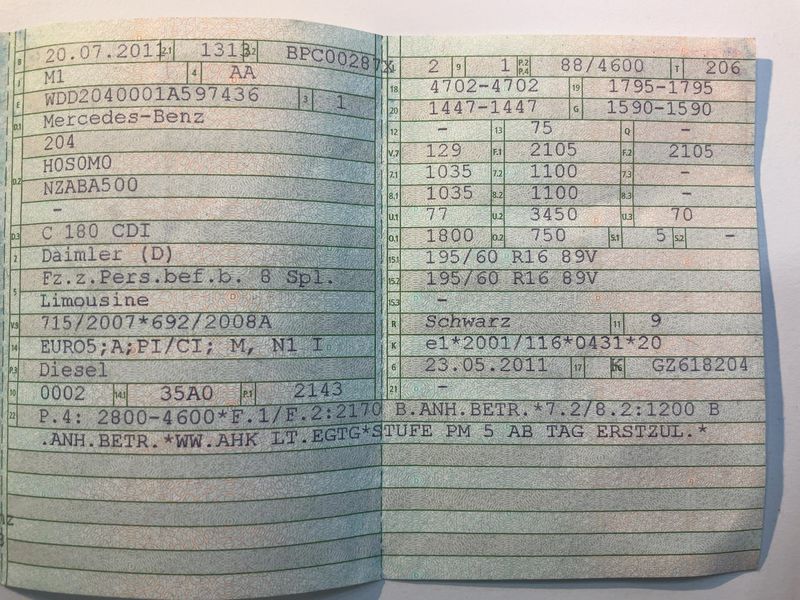 B 20.07.2011 2.1 1313 2.2 BPC00287X
J M1 4 AA
E WDD2040001A597436 3 1
D.1 Mercedes-Benz
204
D.2 H0S0M0
NZABA500
-
D.3 C 180 CDI
2 Daimler (D)
5 Fz.z.Pers.bef.b. 8 Spl.
Limousine
V.9 715/2007*692/2008A
14 EURO5;A;PI/CI; M, N1 I
P.3 Diesel
10 0002 14.1 35A0 P.1 2143
22 P.4: 2800-4600*F.1/F.2:2170 B.ANH.BETR.*7.2/8.2:1200 B
.ANH.BETR.*WW.AHK LT.EGTG*STUFE PM 5 AB TAG ERSTZUL.*
2 9 1 P.2 P.4 88/4600 T 206
18 4702-4702 19 1795-1795
20 1447-1447 G 1590-1590
12 - 13 75 Q -
V.7 129 F.1 2105 F.2 2105
7.1 1035 7.2 1100 7.3 -
8.1 1035 8.2 1100 8.3 -
U.1 77 U.2 3450 U.3 70
O.1 1800 O.2 750 S.1 5 S.2 -
15.1 195/60 R16 89V
15.2 195/60 R16 89V
15.3 -
R Schwarz 11 9
K e1*2001/116*0431*20
6 23.05.2011 17 K 16 GZ618204
21 -